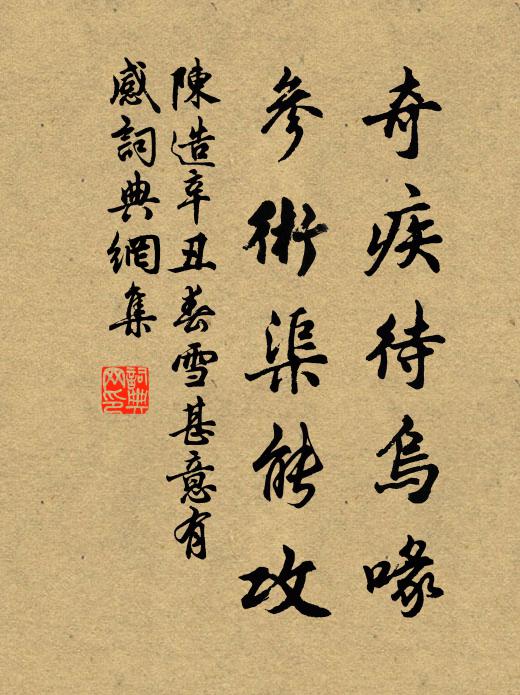 奇疾待烏喙
參術渠能攻
陳造辛丑春雪甚意有
感詞典網集
詞典網印